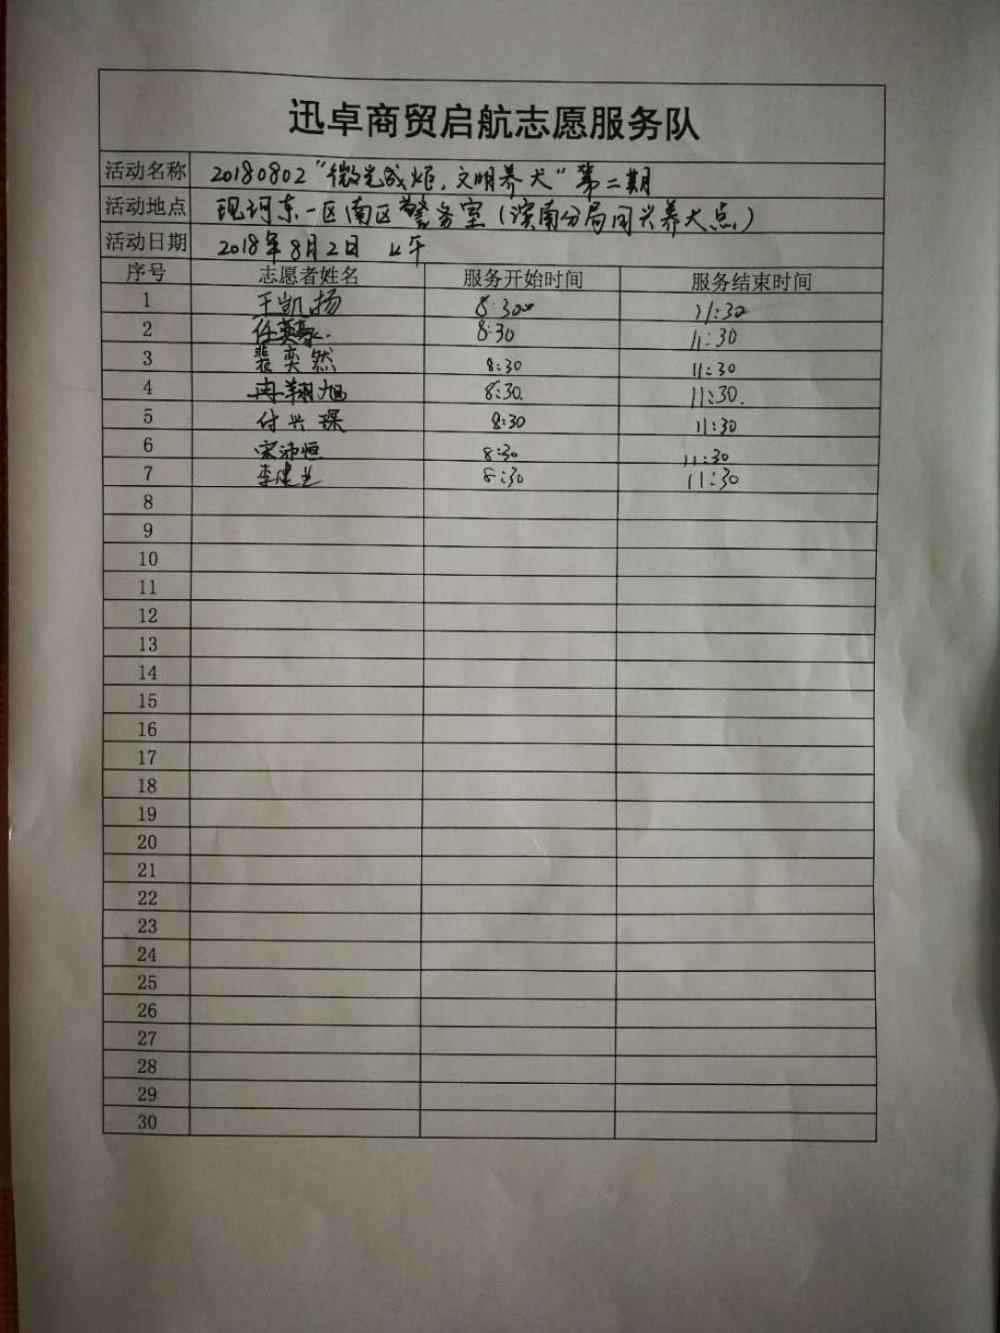 迅卓商贸启航志愿服务队
活动名称 20180802"微光成炬,文明养犬"第二期
活动地点 瑰珂东一区南区警务室(滨南分局同兴养犬点)
活动日期 2018年8月2日 上午
序号 志愿者姓名 服务开始时间 服务结束时间
1 王凯扬 8:30 11:30
2 任英豪 8:30 11:30
3 裴奕然 8:30 11:30
4 冉翔旭 8:30. 11:30.
5 付兴琛 8:30 11:30
6 宋沛恒 8:30 11:30
7 李建 8:30 11:30
8
9
10
11
12
13
14
15
16
17
18
19
20
21
22
23
24
25
26
27
28
29
30